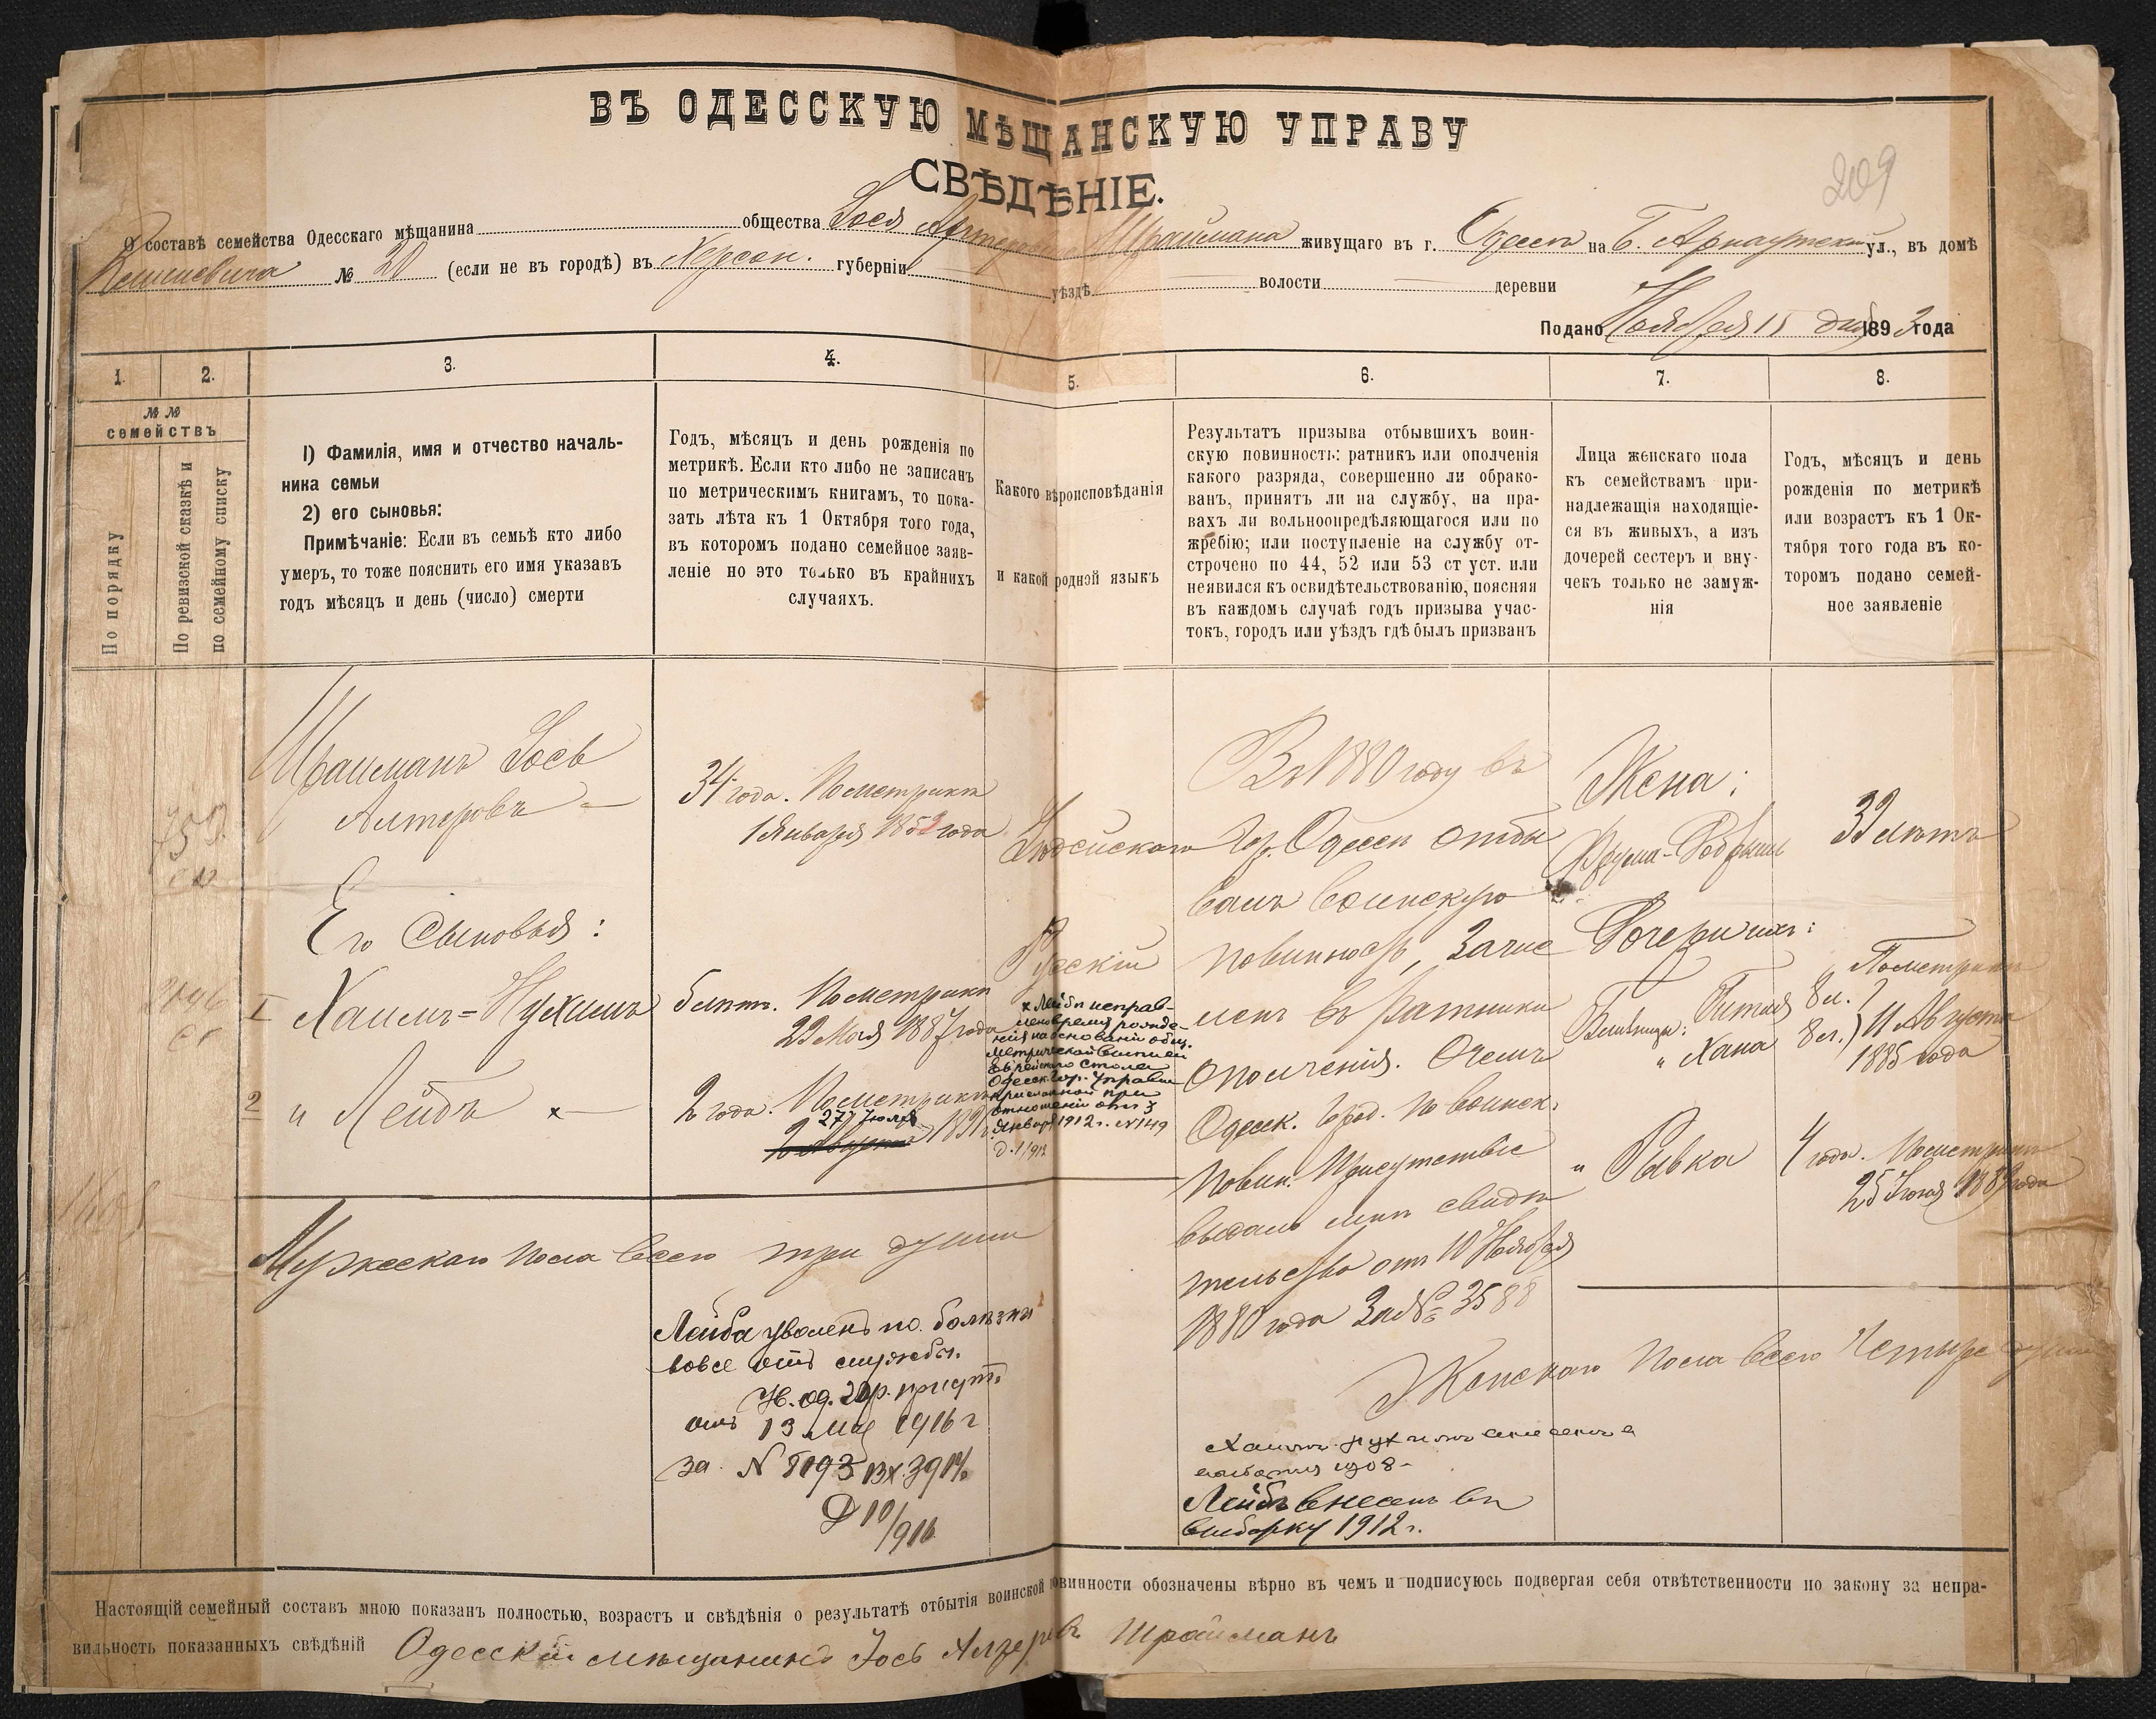 ВЪ ОДЕССКУЮ МѢЩАНСКУЮ УПРАВУ
СВѢДѢНІЕ.
209
О составѣ семейства Одесскаго мѣщанина общества Іося Шраймана живущаго въ г. Одессѣ на Б. Арнаутской ул., въ домѣ
№ 20 (если не въ городѣ) въ Херсон. губерніи уѣздѣ волости деревни
Подано Ноября 15 дня 1893 года
1.
2.
3.
4.
5.
6.
7.
8.
№ №
семействъ
По порядку
По ревизской сказкѣ и
по семейному списку
I) Фамилія, имя и отчество началь-
ника семьи
2) его сыновья:
Примѣчаніе: Если въ семьѣ кто либо
умеръ, то тоже пояснить его имя указавъ
годъ мѣсяцъ и день (число) смерти
Годъ, мѣсяцъ и день рожденія по
метрикѣ. Если кто либо не записанъ
по метрическимъ книгамъ, то пока-
зать лѣта къ 1 Октября того года,
въ которомъ подано семейное заяв-
леніе но это только въ крайнихъ
случаяхъ.
Какого вѣроисповѣданія
и какой родной языкъ
Результатъ призыва отбывшихъ воин-
скую повинность: ратникъ или ополченія
какого разряда, совершенно ли обрако-
ванъ, принятъ ли на службу, на пра-
вахъ ли вольноопредѣляющагося или по
жребію; или поступленіе на службу от-
строчено по 44, 52 или 53 ст уст. или
неявился къ освидѣтельствованію, поясняя
въ каждомъ случаѣ годъ призыва учас-
токъ, городъ или уѣздъ гдѣ былъ призванъ
Лица женскаго пола
къ семействамъ при-
надлежащія находящіе-
ся въ живыхъ, а изъ
дочерей сестеръ и вну-
чекъ только не замуж-
нія
Годъ, мѣсяцъ и день
рожденія по метрикѣ
или возрастъ къ 1 Ок-
тября того года въ ко-
торомъ подано семей-
ное заявленіе
Шрайманъ Іось
Алтеровъ
34 года. По метрикѣ
1 Января года
Іудейскаго
Русскій
Его Сыновья:
I Хаимъ-Нухимъ
6 лѣтъ. По метрикѣ
1887 года
2 " Лейбъ ×
2 года. По метрикѣ
27 Іюля
2 Августа 1891
× Лейбѣ исправ-
лено время рожде-
нія на основаніи
метрической выписи
Еврейскаго Стола
Одесск. Гор. Управы
присланной при
отношеніи отъ 3
Января 1912 г. №149
Въ 1880 году въ
гор. Одессѣ отбы
валъ воинскую
повинность, зачис
ленъ въ ратники
ополченія. О чемъ
Одесск. Город. по воинск.
повин. Присутствіе
выдало мнѣ свидѣ
тельство отъ 10 Ноября
1880 года за № 3588
Жена:
32 лѣтъ
Дочери ихъ:
Близнецы: Гитля 8 л.
" Хана 8 л.
По метрикѣ
11 Августа
1885 года
" Рывка
4 года. По метрикѣ
25 1889 года
Мужескаго пола всего три души
Женскаго пола всего четыре души
Лейба уволенъ по болѣзни
вовсе отъ службы.
отъ 13 Мая 1916 г
за №
10/916
Хаимъ-Нухимъ внесенъ в
1908
Лейбъ внесенъ въ
выборку 1912 г.
Настоящій семейный составъ мною показанъ полностью, возрастъ и свѣдѣнія о результатѣ отбытія воинской повинности обозначены вѣрно въ чемъ и подписуюсь подвергая себя отвѣтственности по закону за непра-
вильность показанныхъ свѣдѣній Одесскій мѣщанинъ Іось Шрайманъ